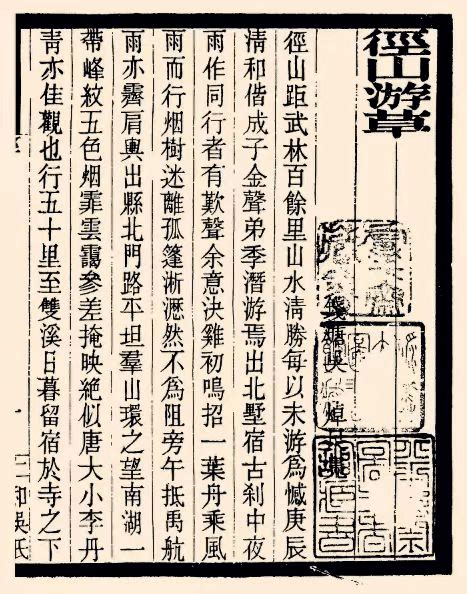 徑山游草
錢塘吳焯
徑山距武林百餘里山水淸勝每以未游爲憾庚辰
淸和偕成子金聲弟季潛游焉出北墅宿古刹中夜
雨作同行者有歎聲余意決雞初鳴招一葉舟乘風
雨而行烟樹迷離孤篷淅瀝然不爲阻旁午抵禹航
雨亦霽肩輿出縣北門路平坦羣山環之望南湖一
帶峰紋五色烟霏雲靄參差掩映絶似唐大小李丹
靑亦佳觀也行五十里至雙溪日暮留宿於寺之下